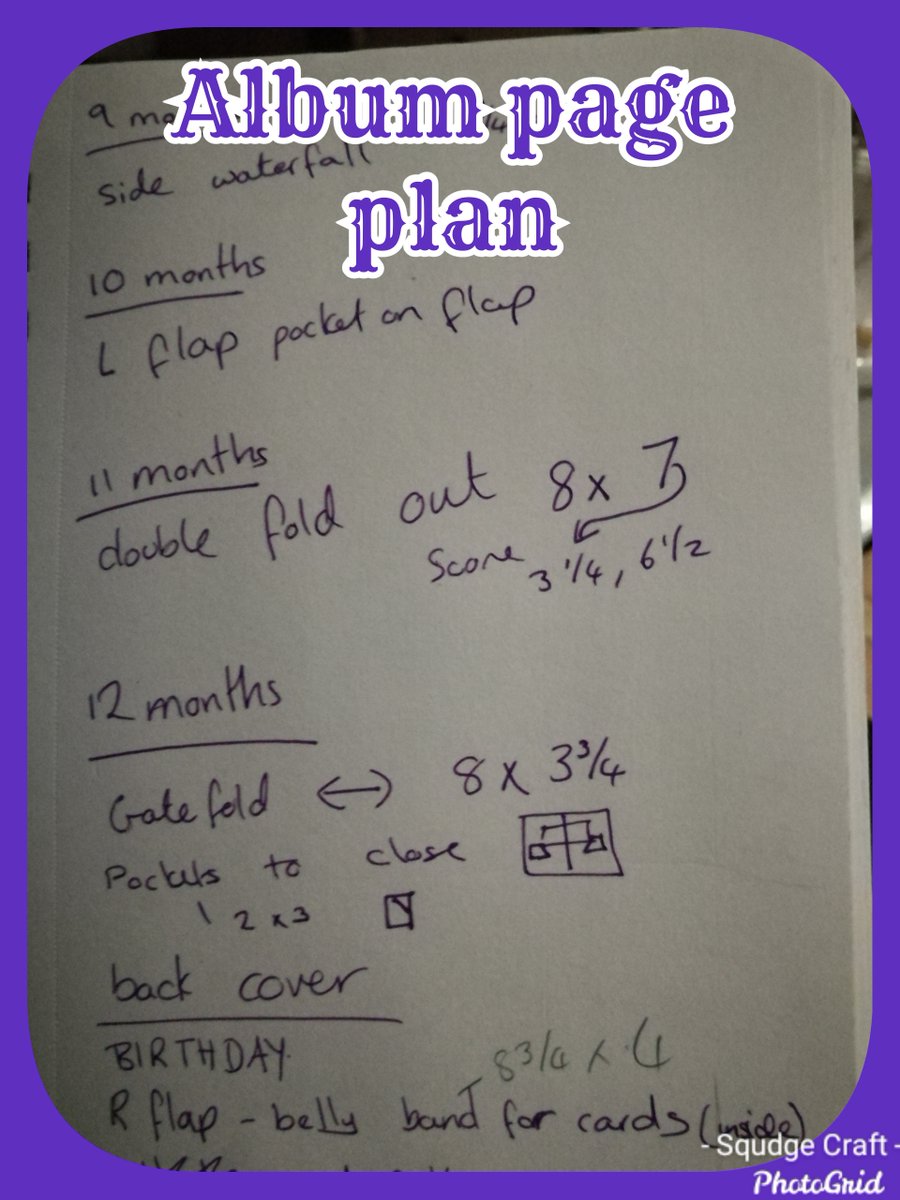 Album page
plan
9 mo
side waterfall
10 months
L flap pocket on flap
11 months
double fold out 8 x 7
Score 3 1/4, 6 1/2
12 months
Gatefold ↔ 8 x 3 3/4
Pockets to close
1 2 x 3
back cover
BIRTHDAY
8 3/4 x 4
R flap - belly band for cards (inside)
- Squdge Craft -
PhotoGrid